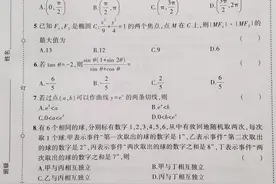 5.已知F₁,F₂是椭圆C:x²/9+y²/4=1的两个焦点,点M在C上,则|MF₁|·|MF₂|的
最大值为
A.13 B.12 C.9 D.6
6.若tanθ=-2,则sinθ(1+sin2θ)/(sinθ+cosθ)=
A.-6/5 B.-2/5 C.2/5 D.6/5
7.若过点(a,b)可以作曲线y=eˣ的两条切线,则
A.eᵇ<a B.eᵃ<b
C.0<a<eᵇ D.0<b<eᵃ
8.有6个相同的球,分别标有数字1,2,3,4,5,6,从中有放回地随机取两次,每次
取1个球.甲表示事件"第一次取出的球的数字是1",乙表示事件"第二次取
出的球的数字是2",丙表示事件"两次取出的球的数字之和是8",丁表示事件"两
次取出的球的数字之和是7",则
A.甲与丙相互独立 B.甲与丁相互独立
C.乙与丙相互独立 D.丙与丁相互独立